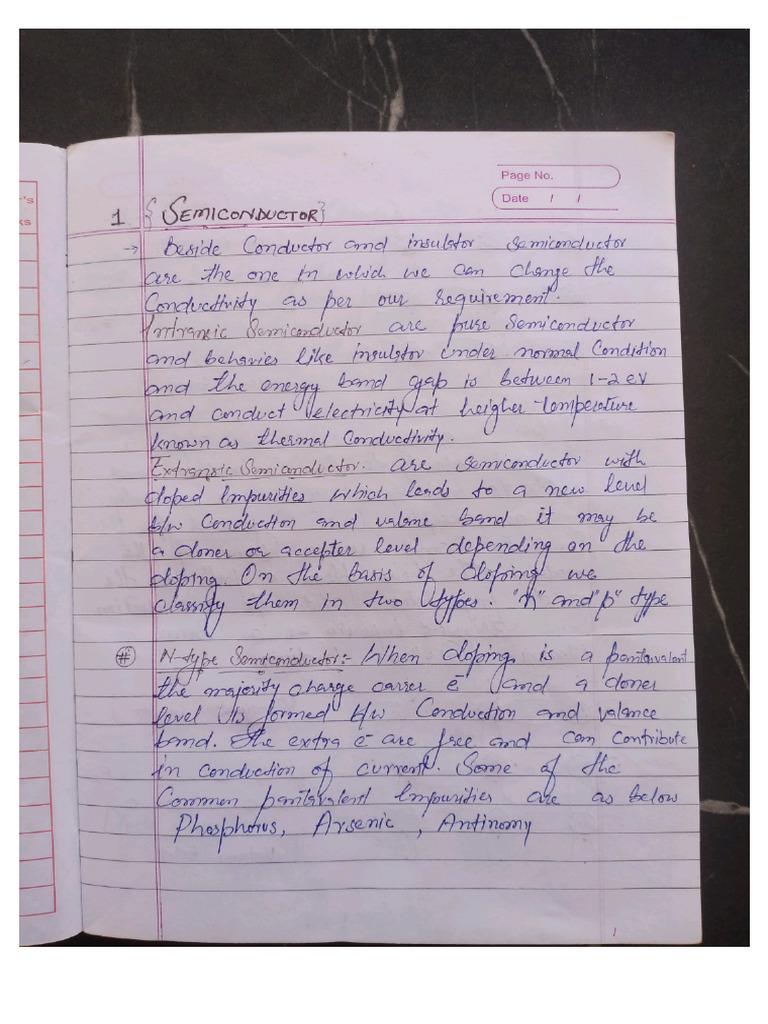 Page No.
Date / /
's
ks
1 {SEMICONDUCTOR}
→ Beside Conductor and insulator semiconductor
are the one in which we can change the
Conductivity as per our requirement.
Intransic Semiconductor are pure semiconductor
and behavies like insulator under normal Condition
and the energy band gap is between 1-2 eV
and conduct electricity at heigher temperature
known as thermal Conductivity.
Extransic Semiconductor. are semiconductor with
doped Impurities which leads to a new level
b/w Conduction and valane band it may be
a doner or accepter level depending on the
doping. On the basis of doping we
classify them in two types. "n" and "p" type
# N-type Semiconductor:- When doping is a pantavalent
the majority charge carrer e⁻ and a doner
level is formed b/w Conduction and valance
band. The extra e⁻ are free and can contribute
in conduction of current. Some of the
Common pantavalent Impurities are as below
Phosphorus, Arsenic, Antinomy
1